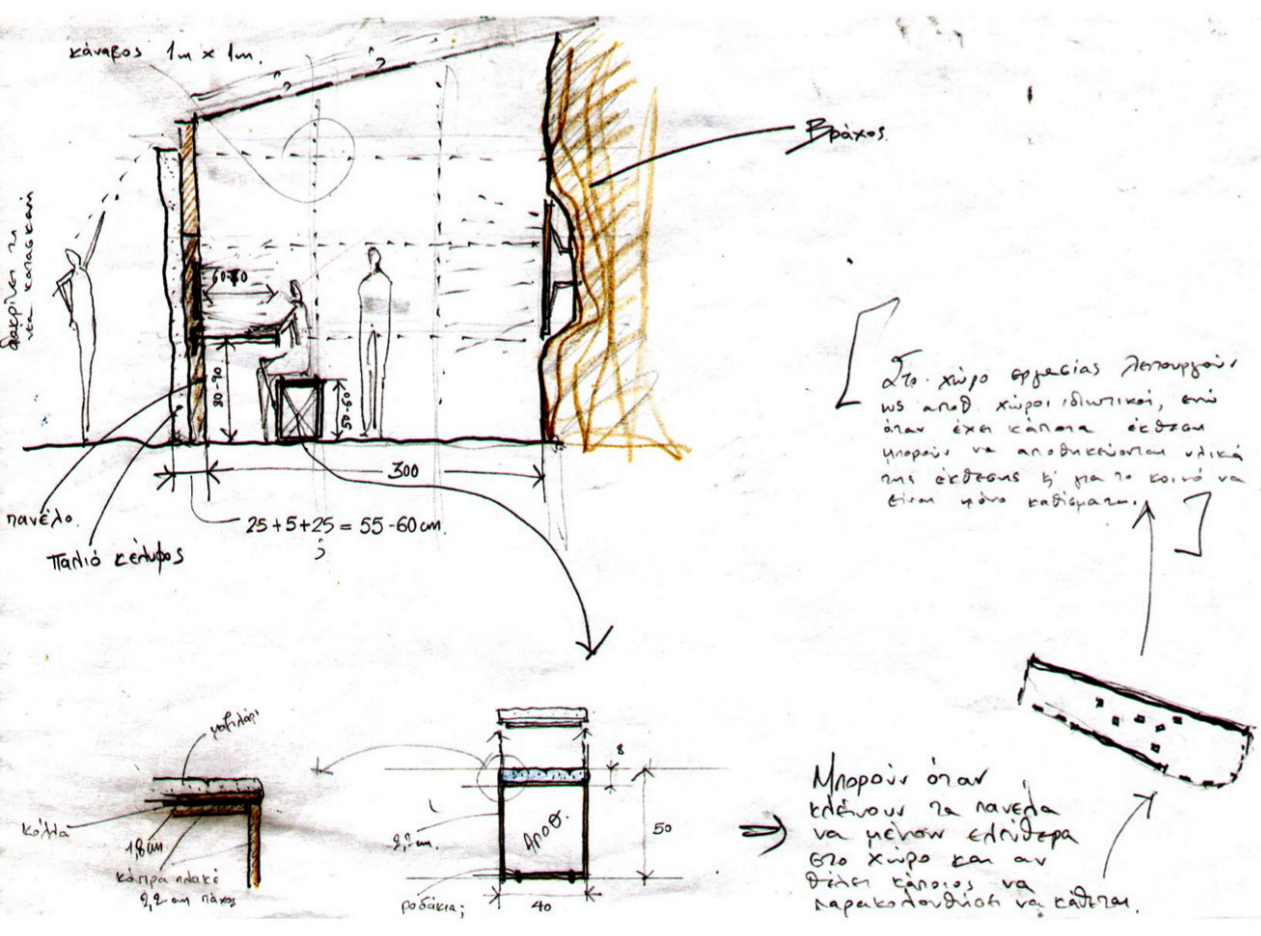 κάναβος 1m x 1m.
?
?
Βράχος
διακρίνει τη
νέα κατασκευή
60-80
80-90
50-60
300
πανέλο.
25+5+25 = 55-60cm.
?
Παλιό κέλυφος
Στο χώρο εργασίας λειτουργούν
ως αποθ. χώροι ιδιωτικοί, ενώ
όταν έχει κάποια έκθεση
μπορούν να αποθηκεύονται υλικά
της έκθεσης ή για το κοινό να
είναι μόνο καθίσματα.
μαξιλάρι
κόλλα
1,8 cm.
κόντρα πλακέ
2,2 cm πάχος
8
50
2,2 cm.
Αποθ.
ροδάκια;
40
Μπορούν όταν
κλείνουν τα πανέλα
να μένουν ελεύθερα
στο χώρο και αν
θέλει κάποιος να
παρακολουθήσει να κάθεται.